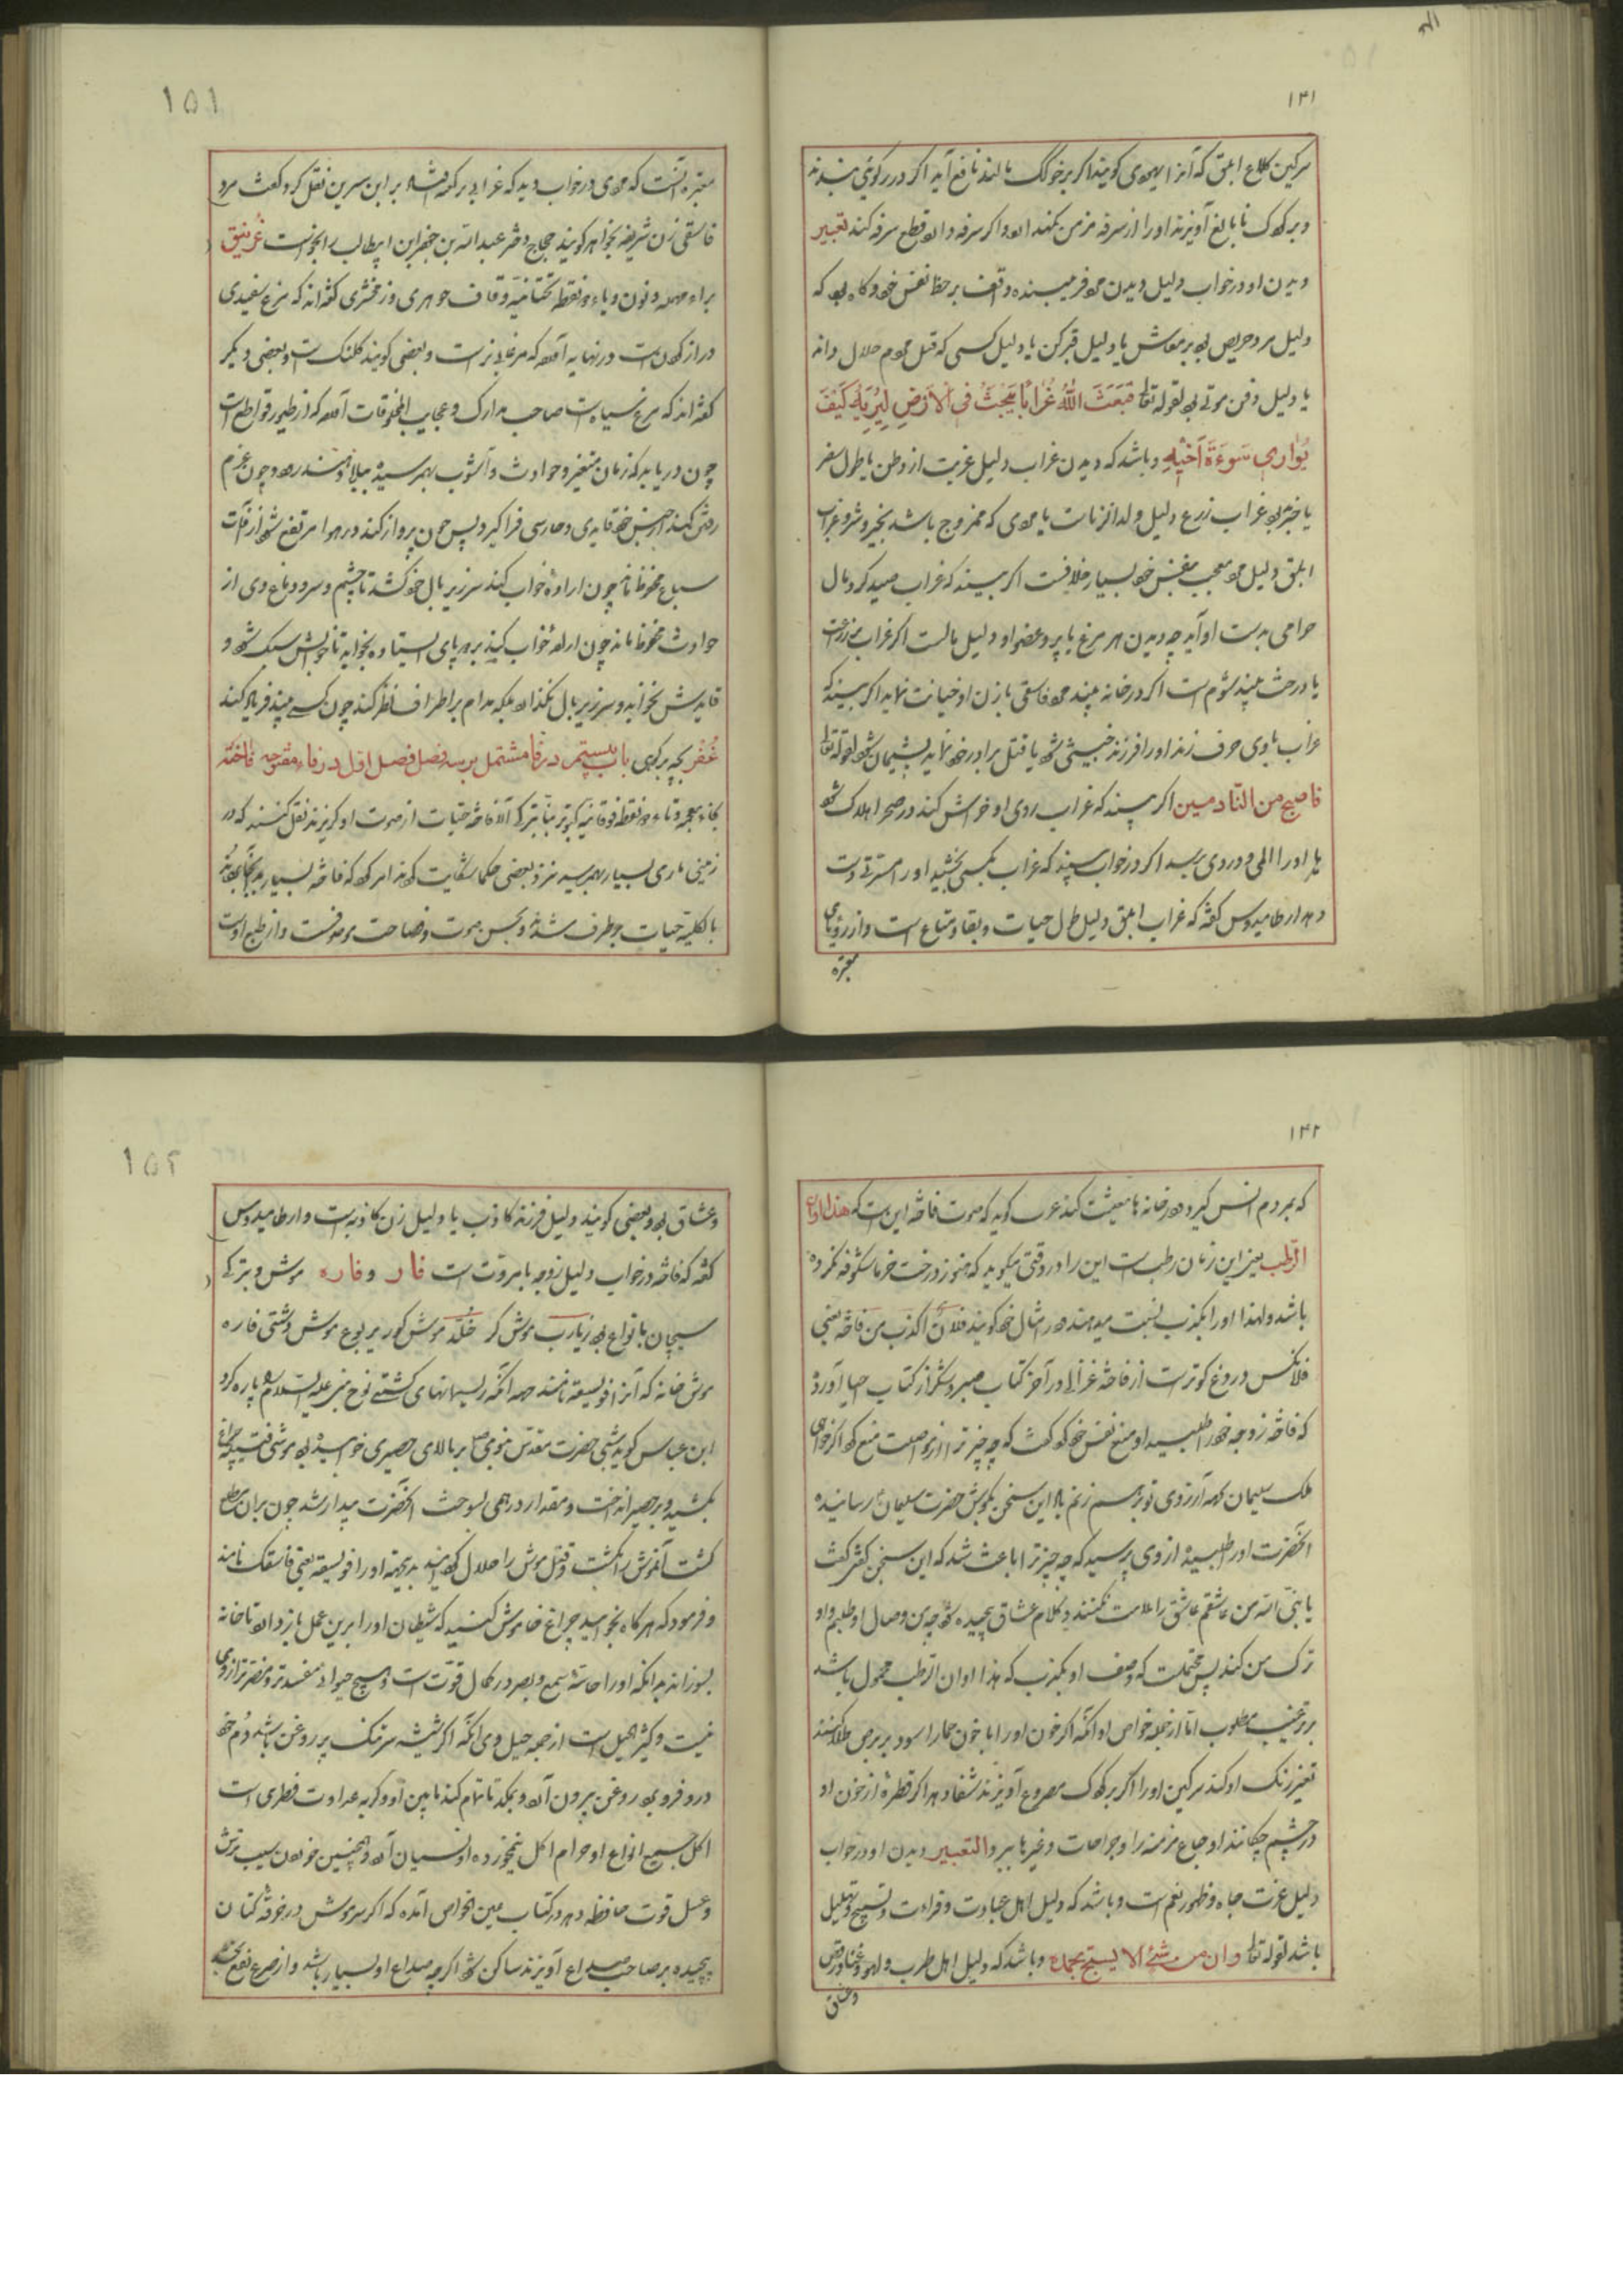 ۱۴۱
سرکین کلاغ ابلق که آنرا یهودی کویند اکر بر خوک مالند نافع آید اکر در رکوئی بندند
و بر کودک نابالغ آویزند او را از سرفه مزمن نکهدارد و اکر سرفه دارد قطع سرفه کند تعبیر
دیدن او در خواب دلیل دیدن مرد واقف بر حظ نفس خود و کاه بود که
دلیل مرد حریص بود بر معاش یا دلیل قبرکن یا دلیل کسی که قتل مردم حلال داند
یا دلیل دفن موتی بود لقوله تعا فَبَعَثَ اللّٰهُ غُرابًا يَبْحَثُ فِي الْاَرْضِ لِيُرِيَهُ كَيْفَ
يُوارى سَوءَةَ اَخيهِ و باشد که دیدن غراب دلیل غربت از وطن یا طول سفر
یا خبر بود غراب زرع دلیل ولد الزناست یا مردی که ممزوج باشد بخیر و شر و غراب
ابلق دلیل مرد معجب بنفس خود بسیار خلافست اکر بیند که غراب صید کرد مال
حرامی بدست او آید چه دیدن هر مرغ یا پر و عضو او دلیل مالست اکر غراب بر زراعت
یا درخت بیند شوم است اکر در خانه بیند مرد فاسقی با زن او خیانت نماید اکر بیند که
غراب با وی حرف زند او را فرزند خبیثی شود یا قتل برادر خود نماید پشیمان شود لقوله تعا
فاصبح من النّادمین اکر بیند که غراب روی او خراش کند در صحرا هلاک شود
یا او را المی و دردی برسد اکر در خواب بیند که غراب بکسی بخشید او را مسرتی دست
دهد ارطامیدوس کفته که غراب ابلق دلیل طول حیات و بقا و متاع است و از رؤیای
معبره
۱۵۱
معبره آنست که مردی در خواب دید که غرابی بر کعبه نشسته بر ابن سرین نقل کرد کفت مرد
فاسقی زن شریفه بخواهد کویند حجاج دختر عبد اللّه بن جعفر ابن ابیطالب را بخواست غُرنیق
براء مهمله و نون و یاء دو نقطه تحتانیه و قاف جوهری و زمخشری کفته اند که مرغ سفیدی
دراز کردن است در نهایه آمده که مرغابی نر است و بعضی کویند کلنک است و بعضی دیکر
کفته اند که مرغ سیاه است صاحب مدارک و عجایب المخلوقات آمده که از طیور قواطع است
چون دریابد که زمان متغیر و حوادث و آشوب بهم رسیده ببلاد خود رود و چون عزم
رفتن کند از جنس خود قایدی و حارسی فرا کیرد پس چون پرواز کند در هوا مرتفع شود از آفات
سباع محفوظ ماند چون اراده خواب کند سر زیر بال خود کشد تا چشم و سر و دماغ وی از
حوادث محفوظ ماند چون اراده خواب کنند بر هر پای ایستاده بخوابد تا خوابش سبک شود و
قایدش نخوابد و سر زیر بال نکذارد بلکه مدام بر اطراف نظر کند چون کسی بیند فریاد کند
غُفْر بچه بز کوهی باب بیستم در فا مشتمل بر سه فصل فصل اول در فاء مفتوحه فاخته
بخاء معجمه و تاء دو نقطه فوقانیه کبوتر بیابانی ترکی آلا فاخته حیات از صوت او کریزند نقل کنند که در
زمینی ماری بسیار بهم رسید نزد بعضی حکما شکایت کردند امر کرد که فاخته بسیار بدانجا بردند
بالکلیه حیات برطرف شدند و بحسن صوت و فصاحت موصوفست و از طبع اوست
۱۴۲
که بمردم انس کیرد و در خانه ها معیشت کند عرب کوید که صوت فاخته این است که هذا اوان
الرّطب یعنی این زمان رطب است این را در وقتی میکوید که هنوز درخت خرما شکوفه نکرده
باشد و لهذا او را بکذب نسبت میدهند و در امثال خود کویند فلانٌ اکذب من فاخته یعنی
فلانکس دروغ کوتر است از فاخته غزالی در آخر کتاب صبر و شکر از کتاب احیا آورده
که فاخته زوجه خود را طلبید او منع نفس خود کرد کفت که چه چیز ترا از مواصلت منع کرد اکر خواهی
ملک سلیمان را بهمه آرزوی تو برهم زنم باد این سخن بکوش حضرت سلیمان ع رسانیده
انحضرت او را طلبیده از وی پرسید که چه چیز ترا باعث شد که این سخن کفتی کفت
یا نبیّ اللّه من عاشقم عاشق را ملامت نکنند و کلام عشاق پیچیده شود چه من وصال او طلبم و او
ترک من کند پس محتملست که وصف او بکذب که هذا اوان الرّطب محمول باشد
بر ترغیب مطلوب امّا از جمله خواص او آنکه اکر خون او را با خون حمار اسود بر برص طلا کنند
تغییر رنک او کند سرکین او را اکر بر کودک مصروع آویزند شفا دهد اکر قطره از خون او
در چشم چکانند اوجاع مزمنه را و جراحات و غیرها ببرد التعبیر دیدن او در خواب
دلیل عزت جاه و ظهور نعم است و باشد که دلیل اهل عبادت و قراءت و تسبیح و تهلیل
باشد لقوله تعا و ان من شیءٍ الا یسبّح بحمده و باشد که دلیل اهل طرب و لهو و غنا و رقص
وعشاق
۱۵۲
وعشاق بود و بعضی کویند دلیل فرزند کاذب یا دلیل زن کاذبه است و ارطامیدوس
کفته که فاخته در خواب دلیل زوجه با مروت است فار و فاره موش و بترکی
سیچان بانواع بود زبارب موش کر خُلد موش کور یربوع موش دشتی فاره
موش خانه که آنرا فویسقه نامند جهه آنکه ریسمانهای کشتی نوح نبی علیه السلام را پاره کرد
ابن عباس کوید شبی حضرت مقدس نبوی ص بر بالای حصیری خوابیده بود موشی فتیله چراغ
بکشید و بر حصیر انداخت و مقدار درهمی بسوخت انحضرت بیدار شد چون بران مطلع
کشت آنموش را بکشت و قتل موش را حلال کردانید بدینجهة او را فویسقه یعنی فاسقک نامند
و فرمود که هرکاه بخوابید چراغ خاموش کنید که شیطان او را برین عمل باز دارد تا خانه
بسوزاند بدانکه او را حاسّه سمع و بصر در کمال قوّت است و هیچ حیوانی مفسدتر و مضرتر از وی
نیست و کثیر الحیل است از جمله حیل وی آنکه اکر شیشه سر تنک پر روغن باشد دُم خود
درو فرو برد و روغن بیرون آرد و بمکد تا تمام کند مابین او و کربه عداوت فطری است
اکل جمیع انواع او حرام اکل نیمخورده او نسیان آرد و همچنین خوردن سیب ترش
و عسل قوت حافظه دهد و در کتاب عین الخواص آمده که اکر سر موش در خرقه کتان
پیچیده بر صاحب صداع آویزند ساکن شود اکرچه صداع او بسیار باشد و از صرع نفع بخشد